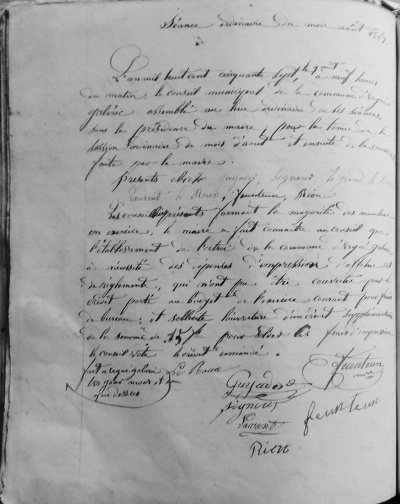 Séance ordinaire du mois août 1857.
L'an mil huit cent cinquante sept, le août à neuf heures
du matin, le conseil municipal de la commune d'Ergué
gabéric assemblé au lieu ordinaire de ses séances,
sous la présidence du maire, pour la tenue de la
session ordinaire de mois d'août et ensuite de la
faite par le maire.
Présents
Laurent le Roux, feunteun, Riou
Les conseillers présents formant la majorité des membres
en exercice, le maire a fait connaître au conseil que
l'établissement de l'octroi de la commune d'ergué gabéric
a nécessité des dépenses d'impression d'affiches et
de règlements, qui n'ont pu être couvertes par le
crédit porté au budget de l'exercice courant pour frais
de bureau, et sollicite l'ouverture d'un crédit supplémentaire
de la somme de 15 f pour solder les frais d'impression
le conseil vote le crédit demandé.
fait à ergué gabéric Le Roux
les jour mois et an
que dessus
feunteun
maire
Laurent
feunteun
Riou